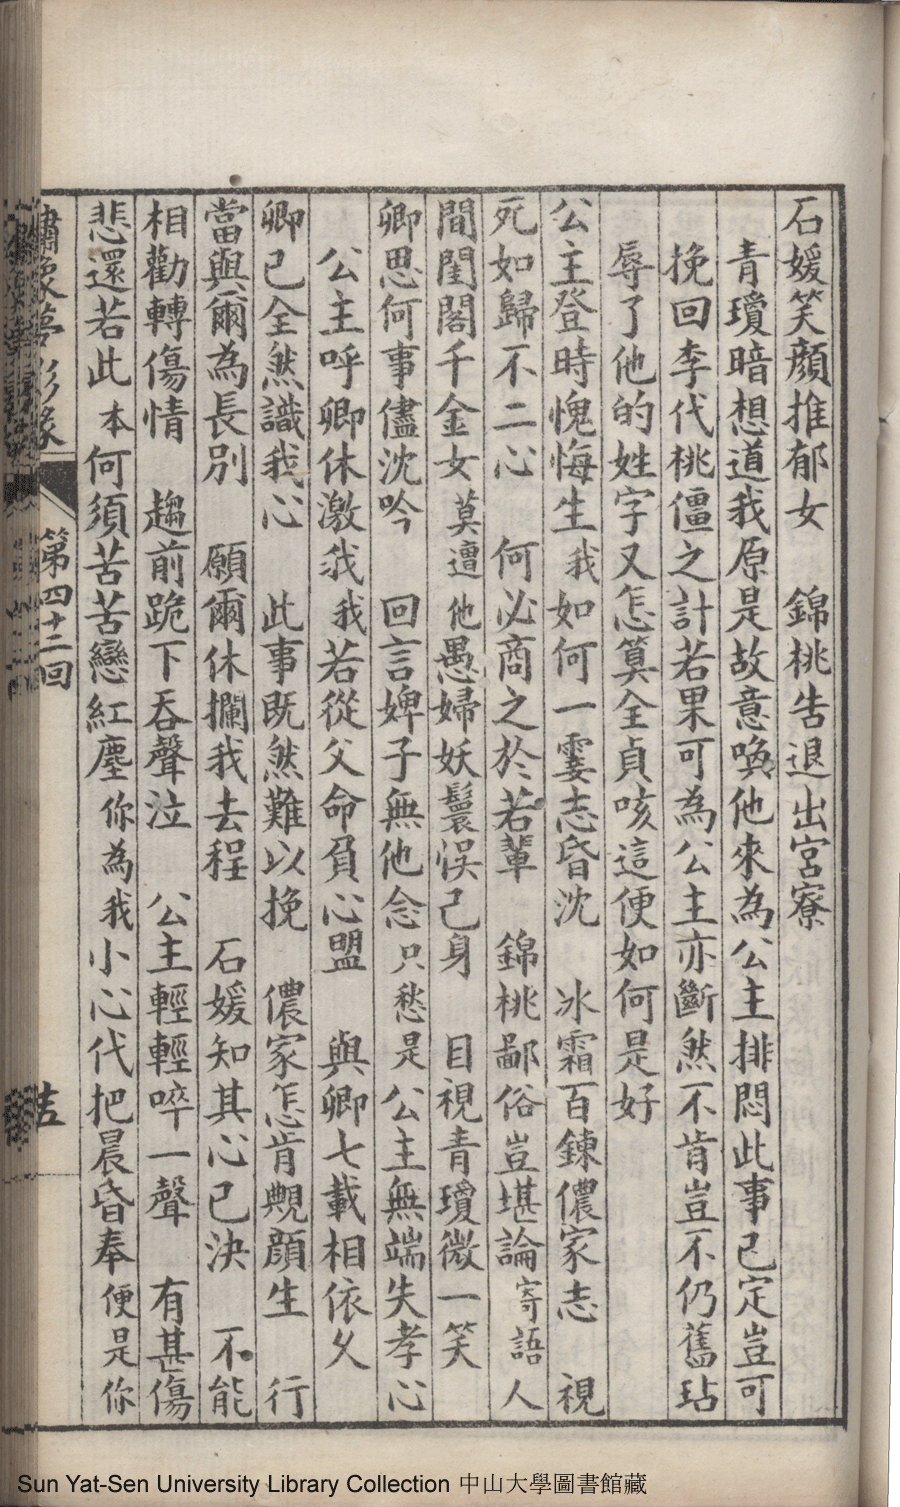 石媛笑顏推郁女　錦桃告退出宮寮
青瓊暗想道我原是故意喚他來為公主排悶此事已定豈可
挽回李代桃僵之計若果可為公主亦斷然不肯豈不仍舊玷
辱了他的姓字又怎算全貞咳這便如何是好
公主登時愧悔生我如何一霎志昏沈　冰霜百鍊儂家志　視
死如歸不二心　何必商之於若輩　錦桃鄙俗豈堪論寄語人
間閨閣千金女莫遭他愚婦妖鬟悮己身　目視青瓊微一笑
卿思何事儘沈吟　回言婢子無他念只愁是公主無端失孝心
公主呼卿休激我我若從父命負心盟　與卿七載相依久
卿已全然識我心　此事既然難以挽　儂家怎肯覥顔生　行
當與爾為長別　願爾休攔我去程　石媛知其心已決　不能
相勸轉傷情　趨前跪下吞聲泣　公主輕輕啐一聲　有甚傷
悲還若此本何須苦苦戀紅塵你為我小心代把晨昏奉便是你
繡像夢影緣　第四十二回
Sun Yat-Sen University Library Collection 中山大學圖書館藏